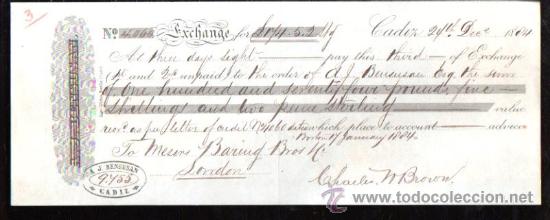 3
No 4066 Exchange for £174.5.2 stg Cadiz 29th Decr 1884
At three days sight pay this third of Exchange
(1st and 2nd unpaid) to the order of A. J. Bensusan Esq the sum
of one hundred and seventy four pounds, five
shillings and two pence sterling value
recd as per letter of credit No 4060 which place to account advice
Boston 17 January 1884
To Messrs Baring Bros &
London
Charles W Brown
A. J. BENSUSAN
9453
CADIZ
todocoleccion.net